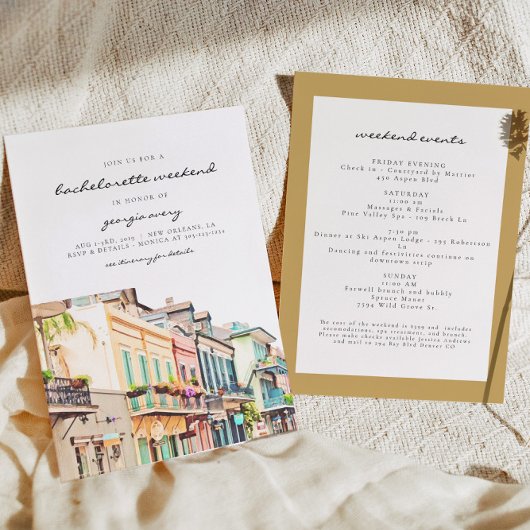 JOIN US FOR A
bachelorette weekend
IN HONOR OF
georgia avery
AUG 1-3RD, 2019 | NEW ORLEANS, LA
RSVP & DETAILS - MONICA AT 303-123-1234
see itinerary for details
weekend events
FRIDAY EVENING
Check in - Courtyard by Marriot
450 Aspen Blvd
SATURDAY
11:00 AM
Massages & Facials
Pine Valley Spa - 109 Breck Ln
7:30 pm
Dinner at Ski Aspen Lodge - 195 Robertson
Ln
Dancing and festivities continue on
downtown strip
SUNDAY
11:00 AM
Farwell brunch and bubbly
Spruce Manor
7650 Wild Grove St.
The cost of the weekend is $399 and includes
accomodations, spa treatment, and all meals.
Please make checks available Jessica Andrews
and mail to 294 Bay Blvd Denver CO